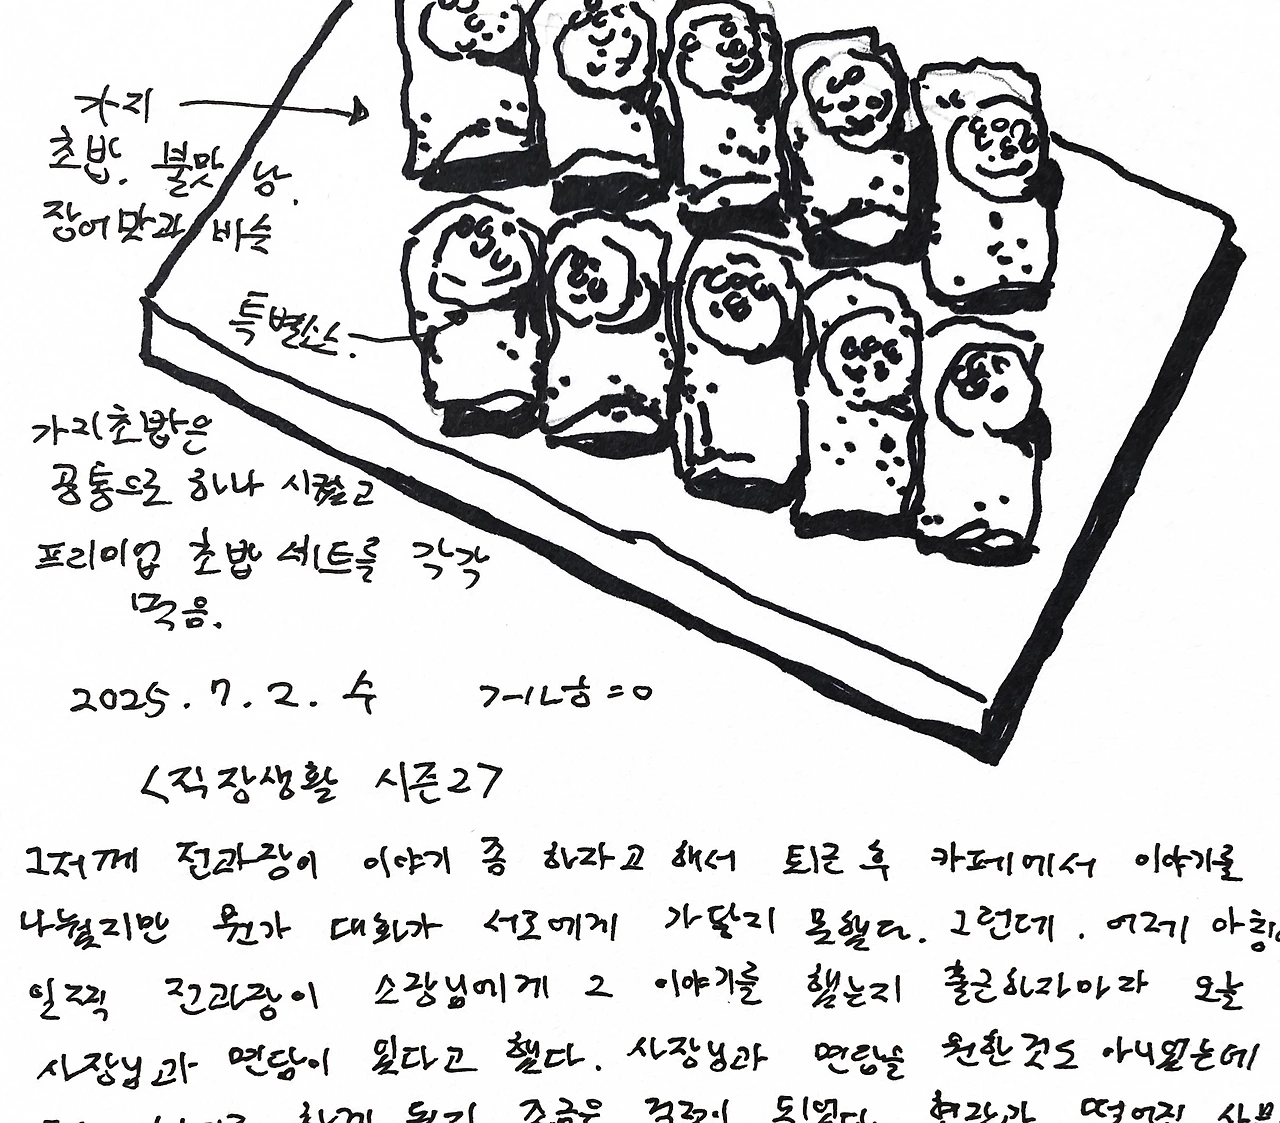 가지
초밥. 불맛 남.
장어맛과 비슷
특별소스.
가지초밥은
공통으로 하나 시켰고
프리미엄 초밥 세트를 각각
먹음.
2025. 7. 2. 수
<직장생활 시즌2>
그저께 전과장이 이야기 좀 하자고 해서 퇴근 후 카페에서 이야기를
나눴지만 뭔가 대화가 서로에게 가닿지 못했다. 그런데. 어제 아침
일찍 전과장이 소장님에게 그 이야기를 했는지 출근하자마자 오늘
사장님과 면담이 있다고 했다. 사장님과 면담을 원한 것도 아니었는데
하게 되니 조금은 걱정이 되었다. 현장과 떨어진